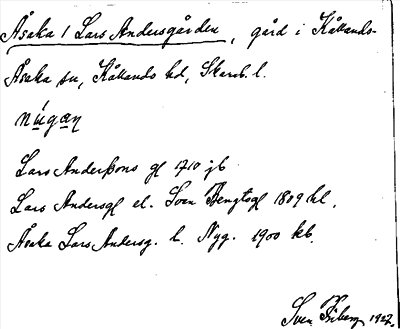 Åsaka 1 Lars Andersgården, gård i Kållands-
Åsaka sn, Kållands hd, Skarab. l.
núgæŋ
Lars Anderssons gl 1710 jb
Lars Andersgl el. Sven Bengtsgl 1809 hl.
Åsaka Lars Andersg. l. Nyg. 1900 kb.
Sven Friberg 1927.